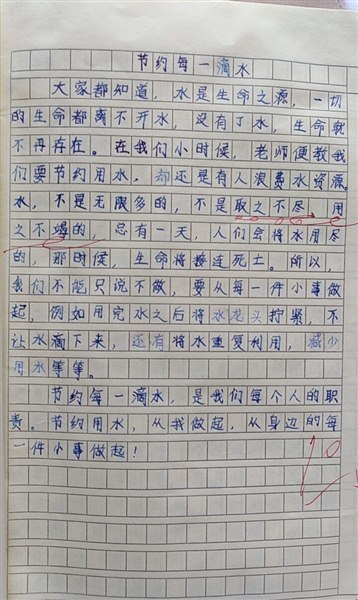 节约每一滴水
大家都知道，水是生命之源，一切
的生命都离不开水，没有了水，生命就
不再存在。在我们小时候，老师便教我
们要节约用水，却还是有人浪费水资源。
水，不是无限多的，不是取之不尽，用
之不竭的，总有一天，人们会将水用尽
的，那时候，生命将接连死亡。所以，
我们不能只说不做，要从每一件小事做
起，例如用完水之后将水龙头拧紧，不
让水滴下来，还有将水重复利用，减少
用水等等。
节约每一滴水，是我们每个人的职
责。节约用水，从我做起，从身边的每
一件小事做起！